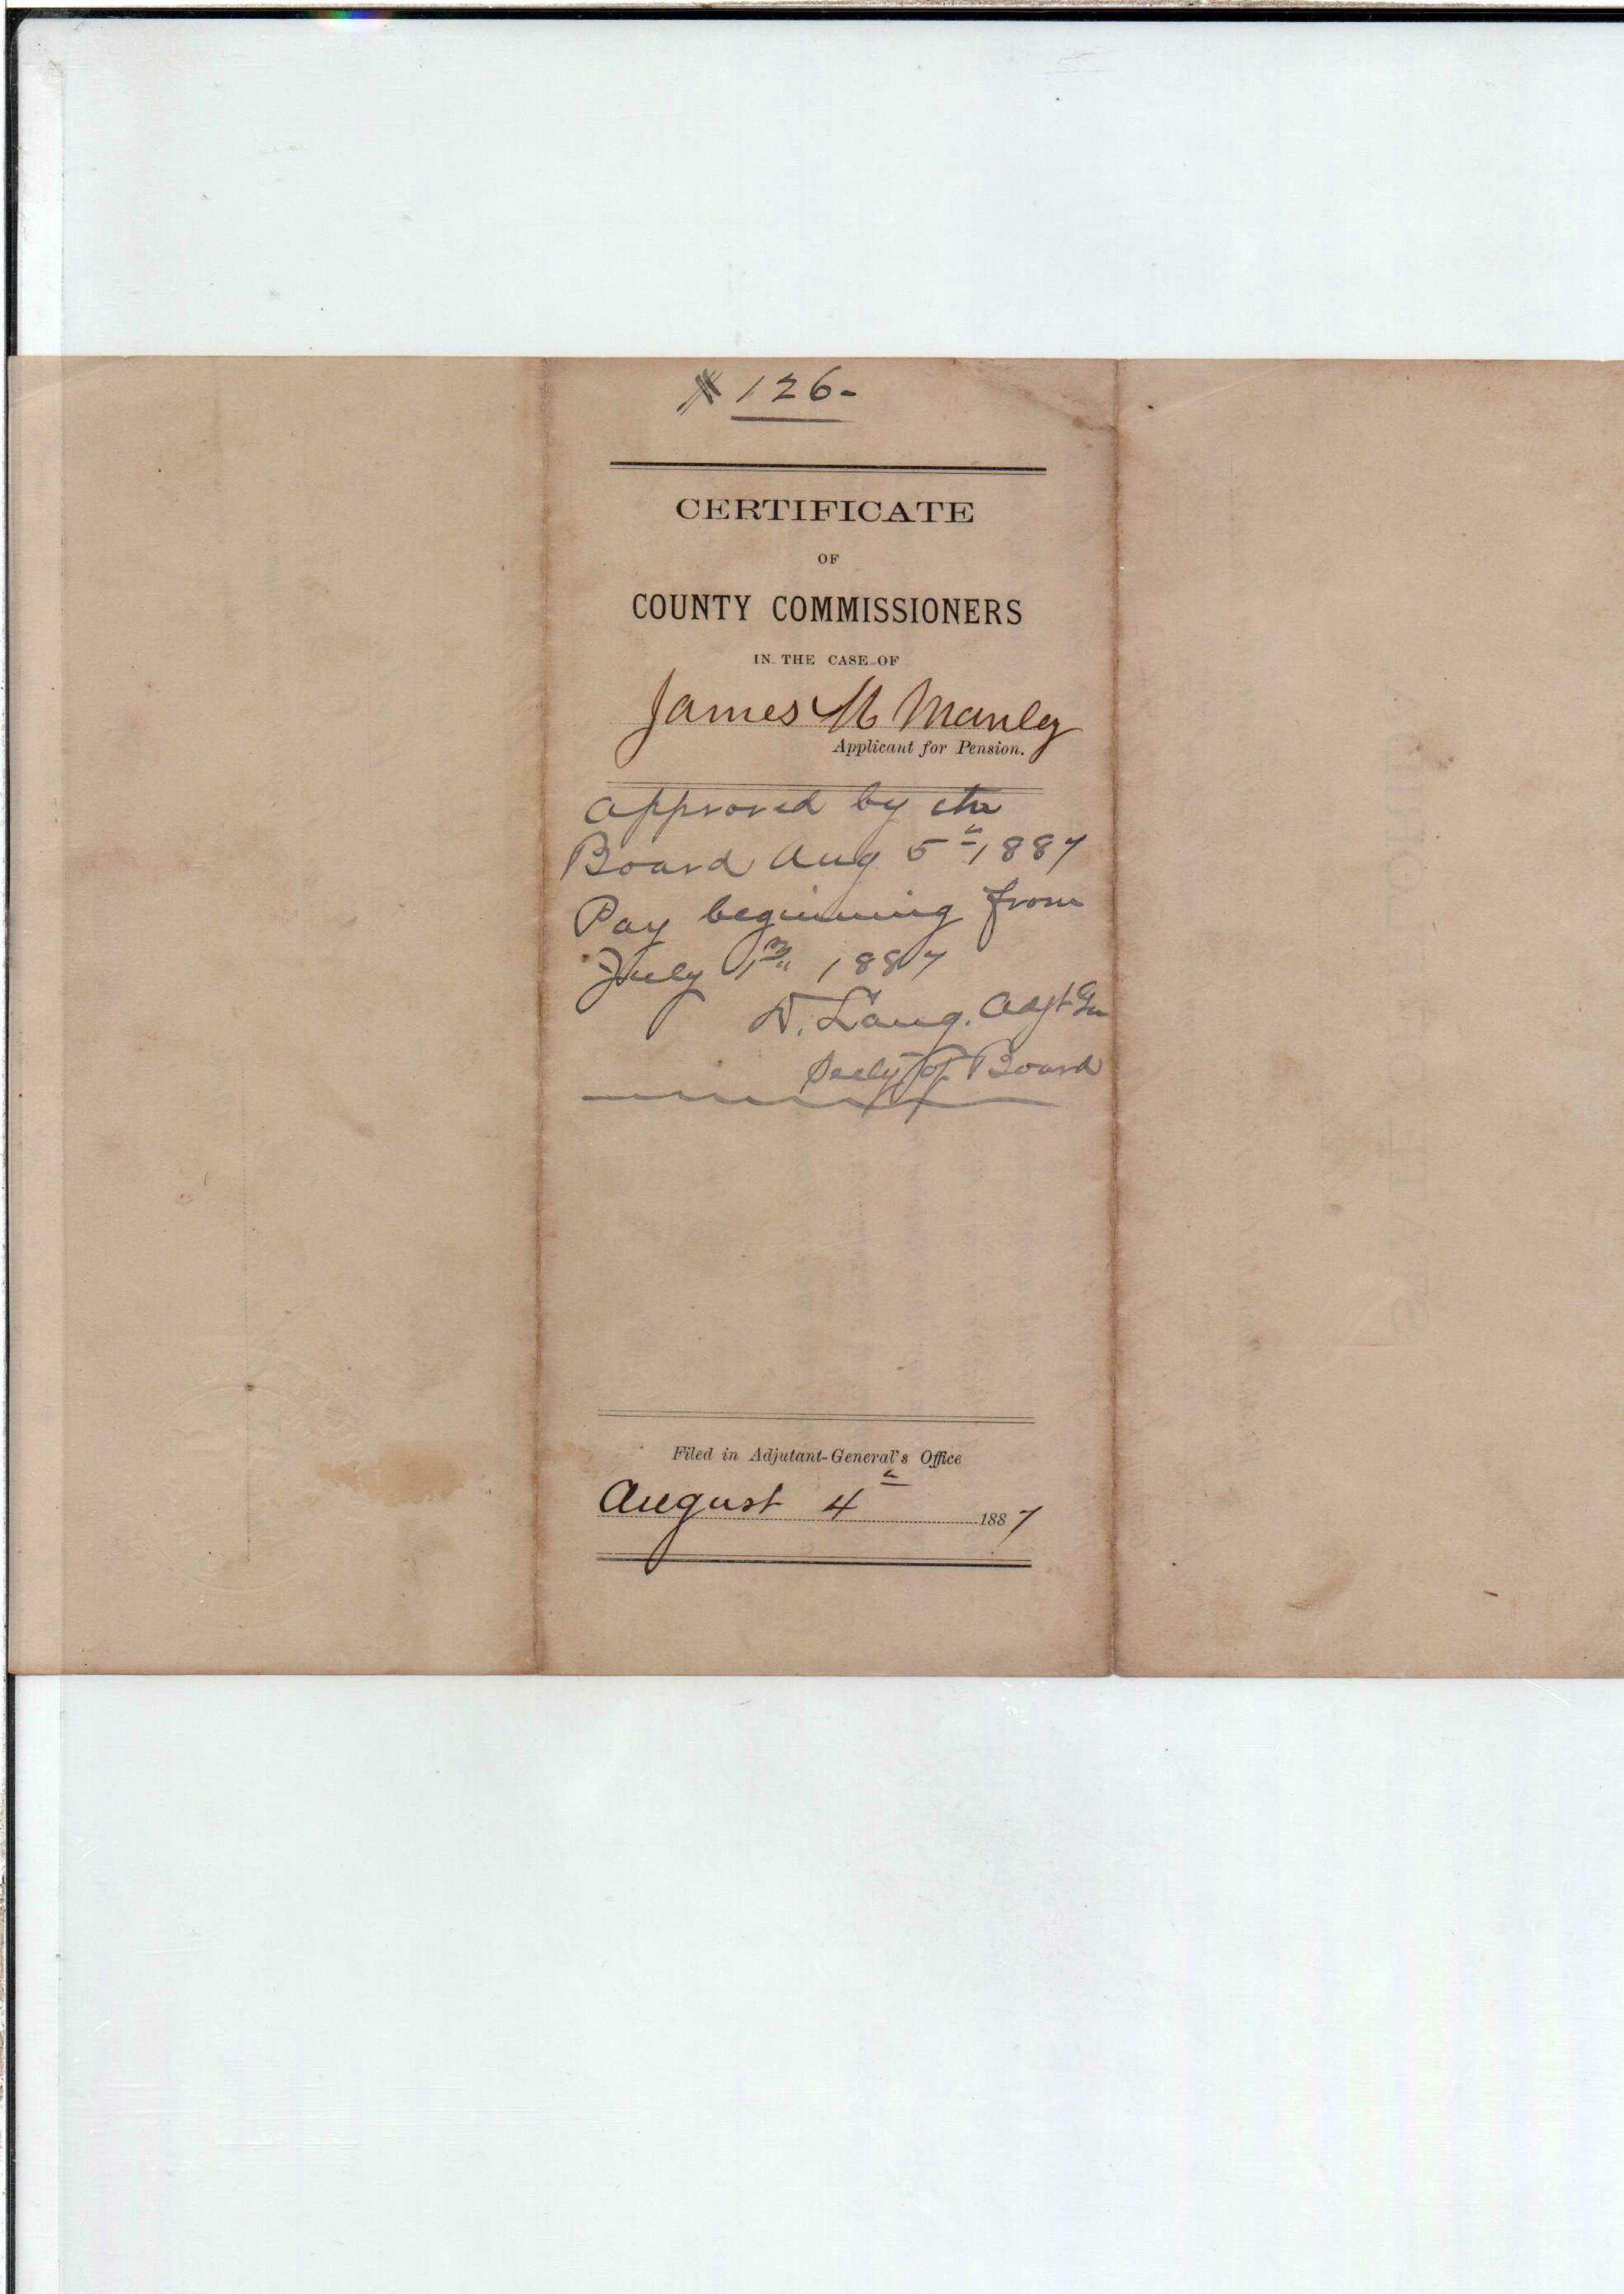 # 126-
CERTIFICATE
OF
COUNTY COMMISSIONERS
IN THE CASE OF
James M Manley
Applicant for Pension.
Approved by the
Board Aug 5th 1887
Pay beginning from
July 1st 1887
D. Lang. Adjt Gen
Secty of Board
Filed in Adjutant-General's Office
August 4th 1887